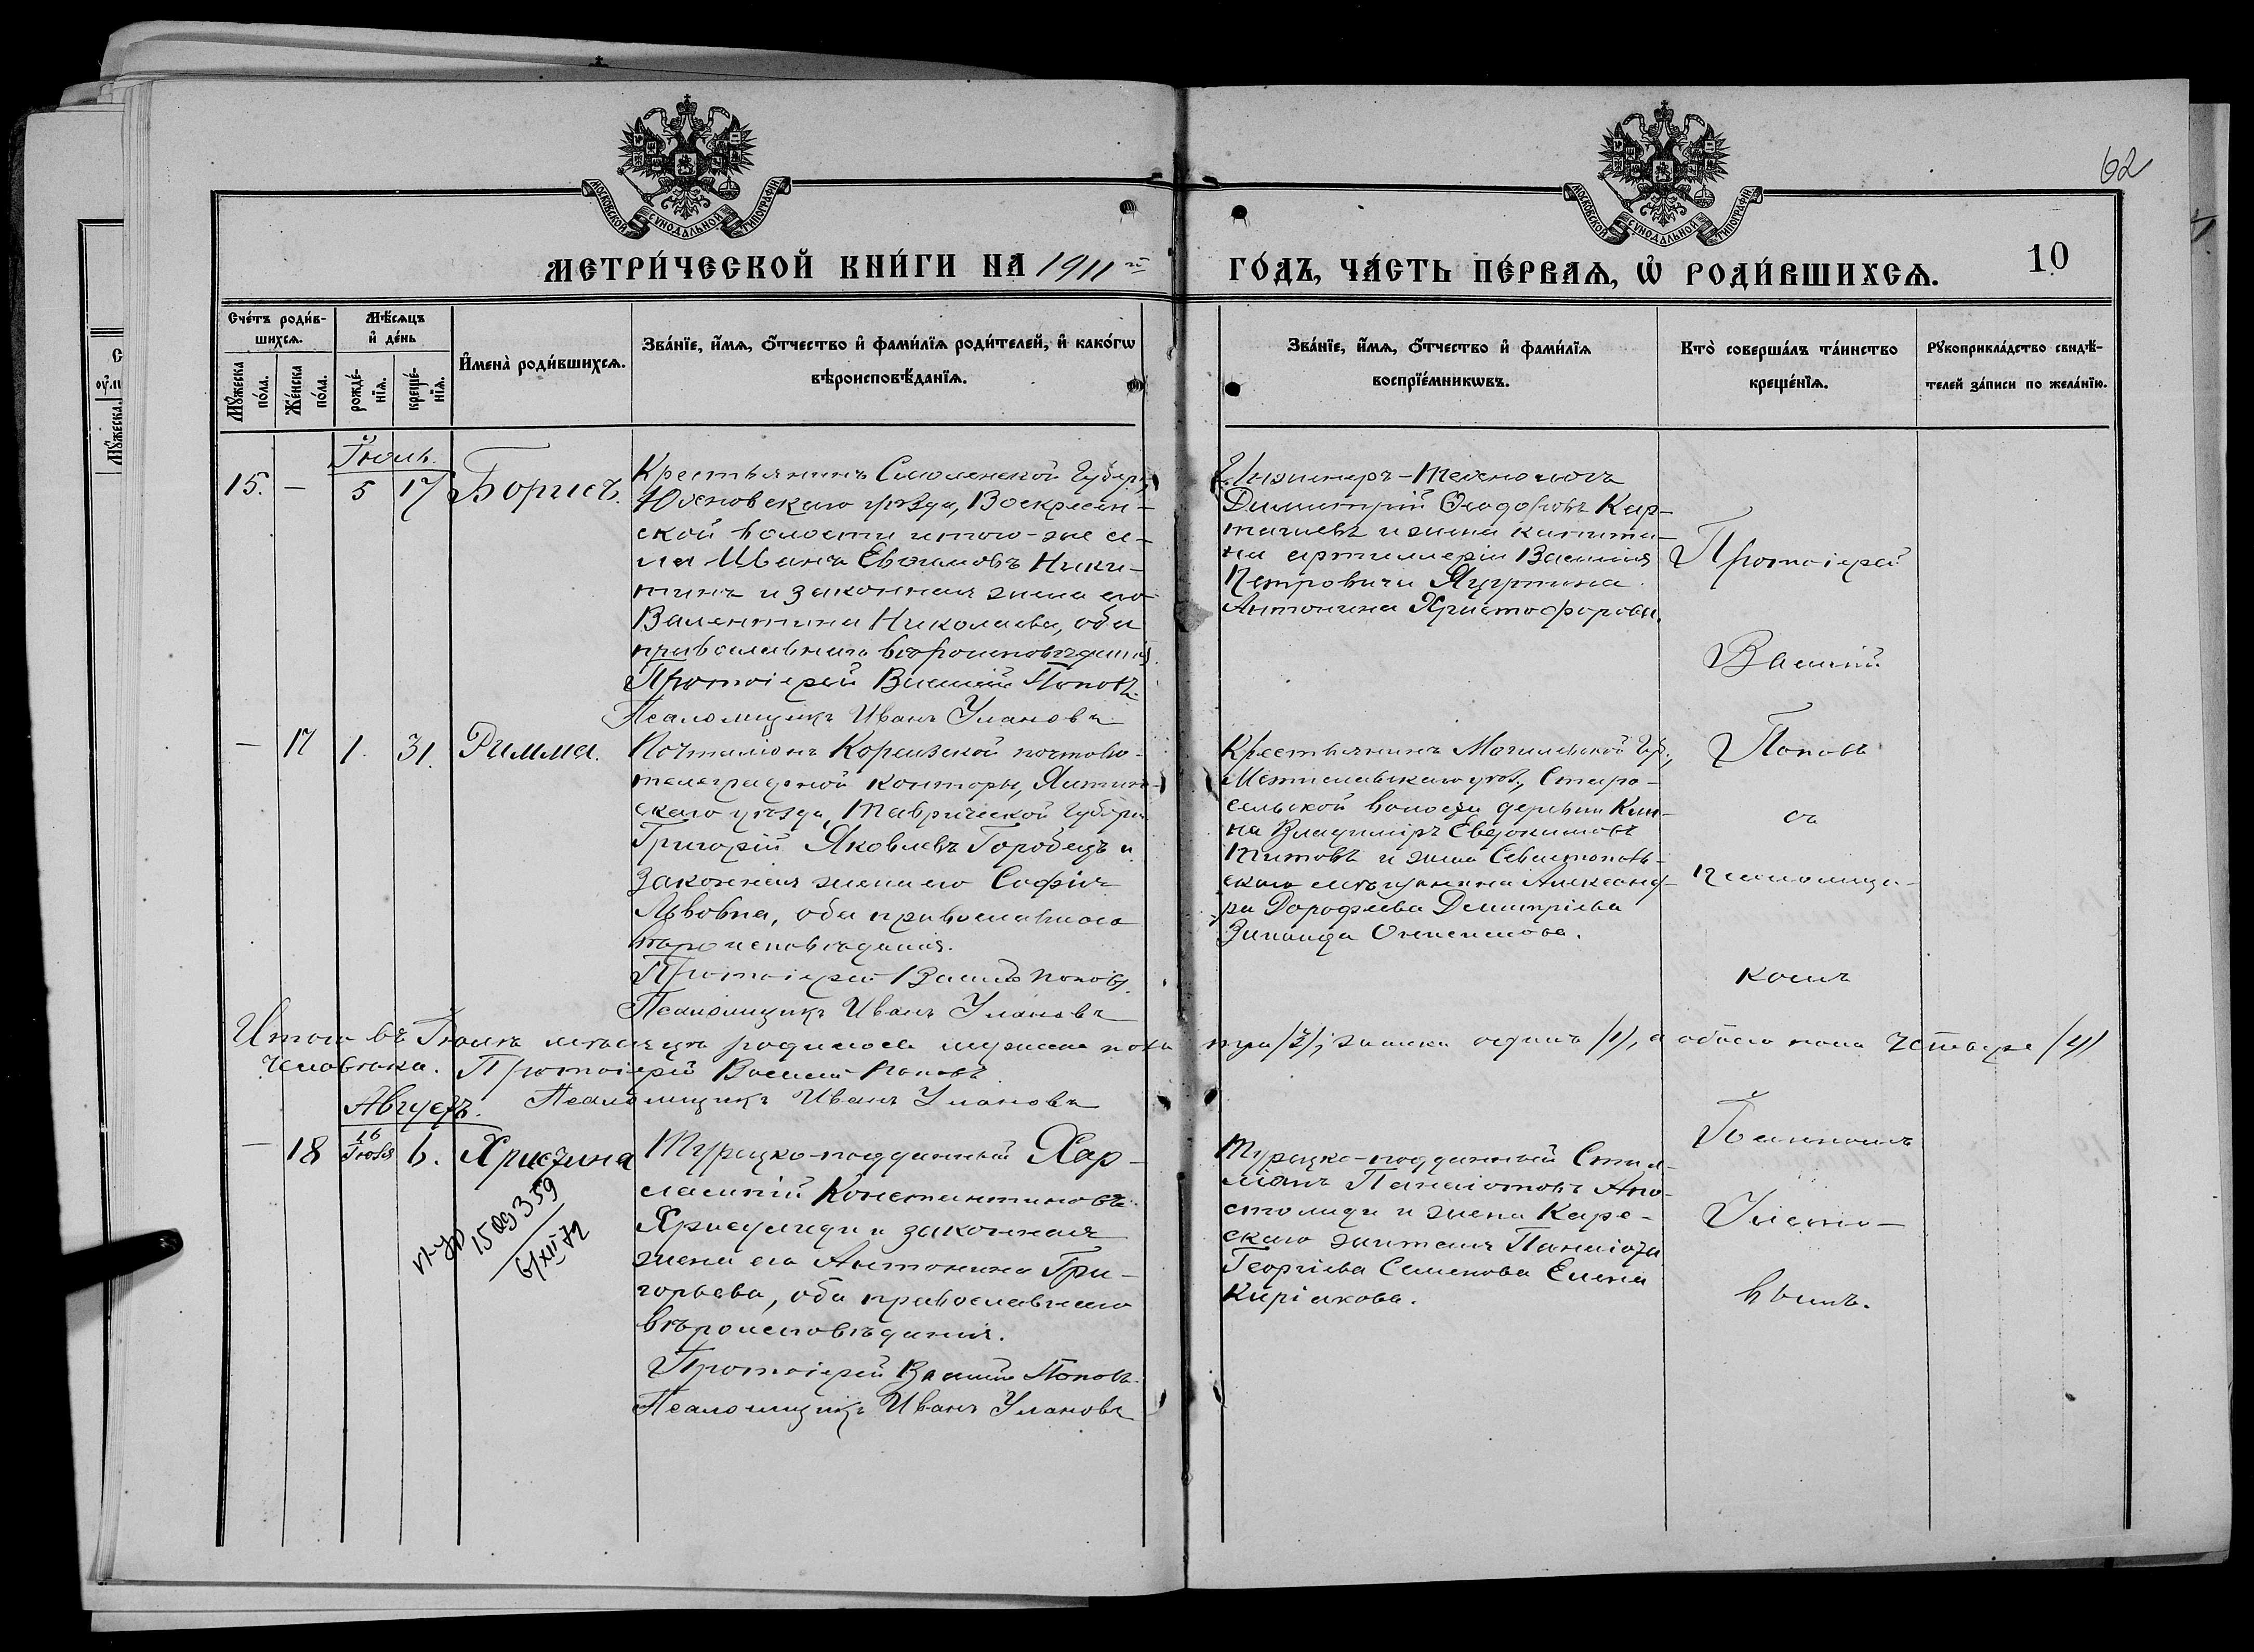 62
МОСКОВСКОЙ СѴНОДАЛЬНОЙ ТИПОГРАФІИ
МОСКОВСКОЙ СѴНОДАЛЬНОЙ ТИПОГРАФІИ
МЕТРИ́ЧЕСКОЙ КНИ́ГИ НА 1911й ГО́ДЪ, ЧА́СТЬ ПЕ́РВАѦ, Ѡ҆ РОДИ́ВШИХСѦ.
10
Сче́тъ роди́в-
шихсѧ.
Мꙋ́жеска
по́ла.
Же́нска
по́ла.
Мѣ́сѧцъ
и҆ де́нь
рожде́-
нїѧ.
креще́-
нїѧ.
И҆мена̀ роди́вшихсѧ.
Зва́нїе, и҆́мѧ, ѻ҆́тчество и҆ фами́лїѧ роди́телей, и҆ како́гѡ
вѣроисповѣ́данїѧ.
Зва́нїе, и҆́мѧ, ѻ҆́тчество и҆ фами́лїѧ
воспрїе́мникѡвъ.
Кто̀ соверша́лъ та́инство
креще́нїѧ.
Рꙋкоприкла́дство свидѣ́-
телей за́писи по жела́нїю.
Іюль.
15. — 5 17 Борисъ.
Крестьянинъ Смоленской Губер.
Юхновскаго уѣзда, Воскресен-
ской волости и того-же се-
ла Иванъ Евѳимовъ Ники-
тинъ и законная жена его
Валентина Николаева, оба
православнаго вѣроисповѣданія.
Протоіерей Василій Поповъ.
Псаломщикъ Иванъ Улановъ
Инженеръ-технологъ
Димитрій Ѳеодоровъ Кар-
ташевъ и жена капита-
на артиллеріи Василія
Петровича
Антонина Христофорова.
— 17 1. 31. Римма.
Почталіонъ Кореизской почтово-
телеграфной конторы, Ялтин-
скаго уѣзда, Таврической Губерн.
Григорій Яковлевъ Городецъ и
законная жена его Софія
Львовна, оба православнаго
вѣроисповѣданія.
Протоіерей Василій Поповъ.
Псаломщикъ Иванъ Улановъ
Крестьянинъ Могилевской Губ.,
Мстиславскаго уѣз., Старо-
сельской волости деревни
Владиміръ Евдокимовъ
Титовъ и жена Севастополь-
скаго мѣщанина Александ-
ра Дорофеева Димитріева
Зинаида
Протоіерей
Василій
Поповъ
съ
псаломщи-
комъ
Іоанномъ
Улано-
вымъ.
Итого въ Іюлѣ мѣсяцѣ родилось мужеска пола три /3/, женска одинъ /1/, а обоего пола четыре /4/
человѣка. Протоіерей Василій Поповъ
Псаломщикъ Иванъ Улановъ
Августъ.
— 18 16 Іюля 6. Христина
15 09 359
6/XII 72
Турецко-подданный Хар-
лампій Константиновъ
и законная
жена его Антонина Гри-
горьева, оба православнаго
вѣроисповѣданія.
Протоіерей Василій Поповъ.
Псаломщикъ Иванъ Улановъ
Турецко-подданный Стил-
ліанъ Панаіотовъ Апо-
столиди и жена Кар-
скаго жителя Панаіота
Георгіева Семенова Елена
Киріакова.